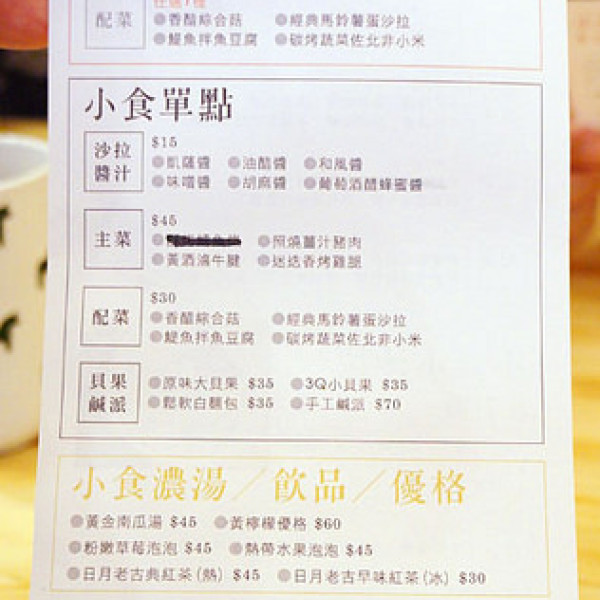 配菜
香醋綜合菇 經典馬鈴薯蛋沙拉
鯷魚拌魚豆腐 碳烤蔬菜佐北非小米
小食單點
沙拉醬汁
$15
凱薩醬 油醋醬 和風醬
味噌醬 胡麻醬 葡萄酒醋蜂蜜醬
主菜
$45
照燒薑汁豬肉
黃酒滷牛腱 迷迭香烤雞腿
配菜
$30
香醋綜合菇 經典馬鈴薯蛋沙拉
鯷魚拌魚豆腐 碳烤蔬菜佐北非小米
貝果鹹派
原味大貝果 $35 3Q小貝果 $35
鬆軟白麵包 $35 手工鹹派 $70
小食濃湯／飲品／優格
黃金南瓜湯 $45 黃檸檬優格 $60
粉嫩草莓泡泡 $45 熱帶水果泡泡 $45
日月老古典紅茶(熱) $45 日月老古早味紅茶(冰) $30